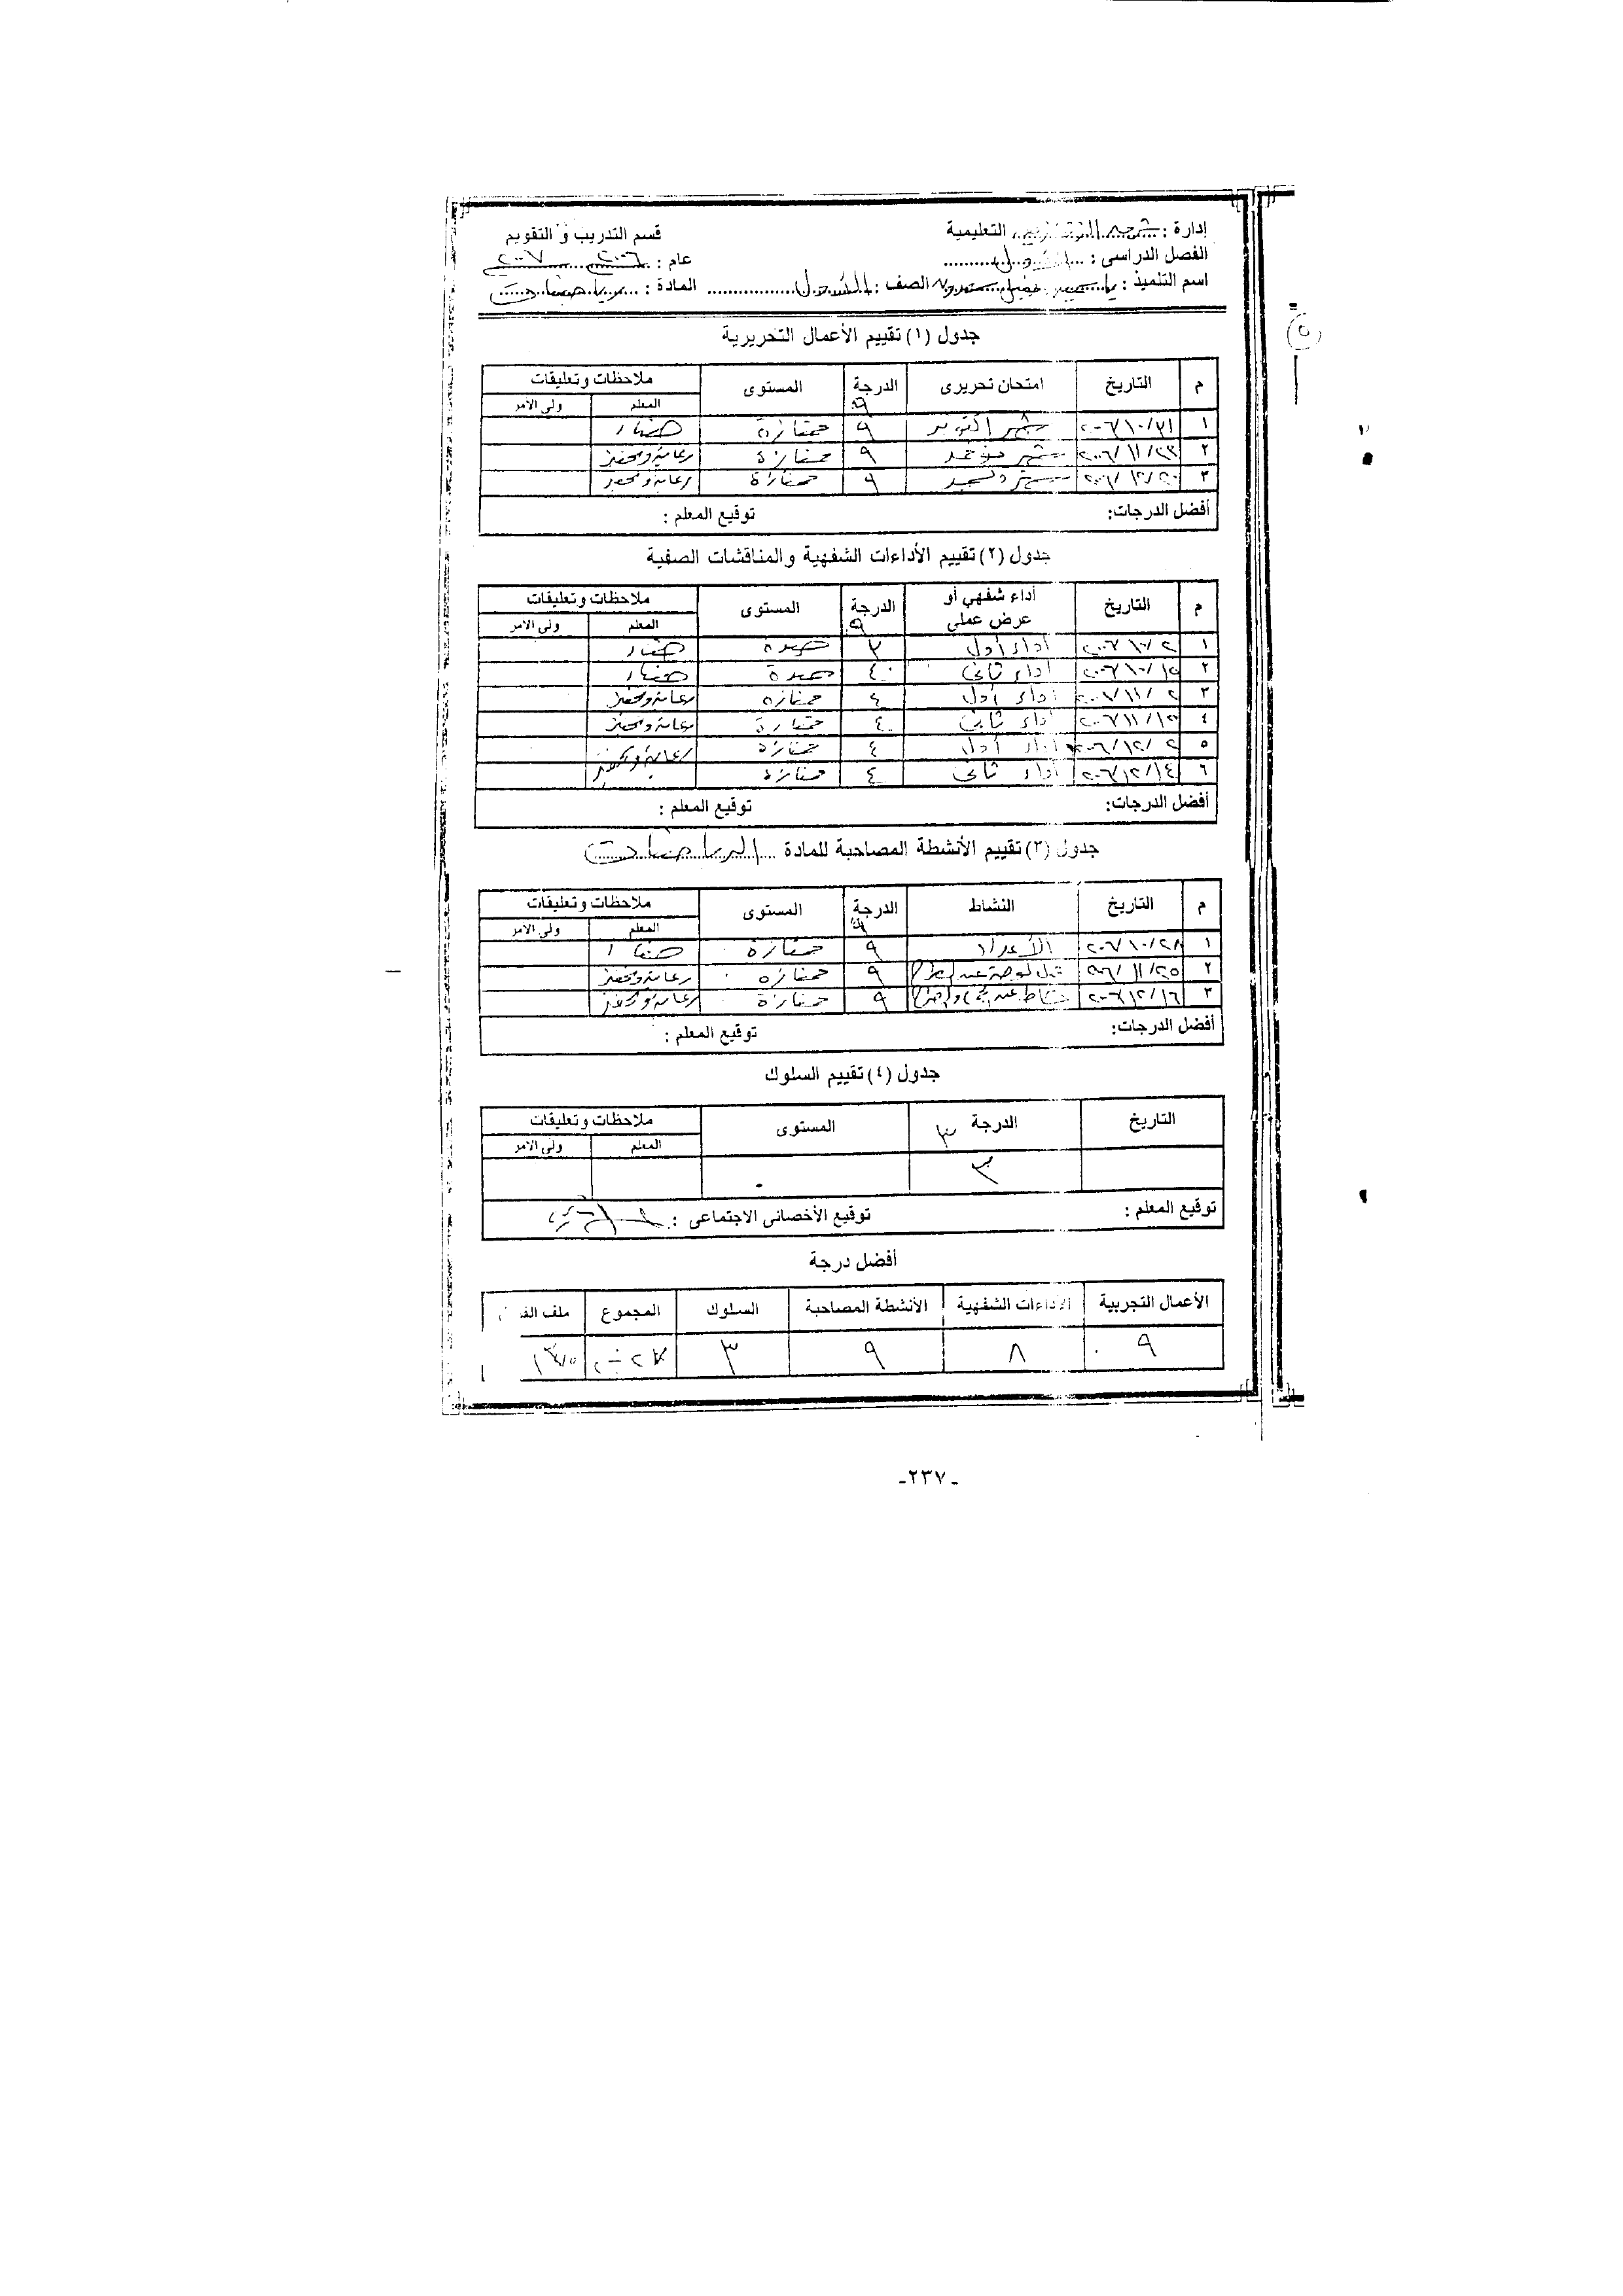 إدارة : شرق الزقازيق التعليمية
قسم التدريب و التقويم
الفصل الدراسى : الأول
عام : ٢٠٠٦ ٢٠٠٧
اسم التلميذ : ياسمين الصف : الأول المادة : رياضيات
جدول (١) تقييم الأعمال التحريرية
م التاريخ امتحان تحريرى الدرجة ٩ المستوى ملاحظات وتعليقات
المعلم ولى الامر
١ ٢٠٠٦/١٠/٣١ شهر اكتوبر ٩ ممتازة ممتاز
٢ ٢٠٠٦/١١/٢٣ شهر نوفمبر ٩ ممتازة رعاية وتحفيز
٣ ٢٠٠٦/١٢/٢٠ شهر ديسمبر ٩ ممتازة رعاية وتحفيز
أفضل الدرجات: توقيع المعلم :
جدول (٢) تقييم الأداءات الشفهية والمناقشات الصفية
م التاريخ أداء شفهي أو عرض عملى الدرجة المستوى ملاحظات وتعليقات
المعلم ولى الامر
١ ٢٠٠٦/١٠/٢ أداء أول ٣ جيدة
٢ ٢٠٠٦/١٠/١٥ أداء ثانى ٤ جيدة
٣ ٢٠٠٦/١١/٢ أداء أول ٤ ممتازة رعاية وتحفيز
٤ ٢٠٠٦/١١/١٥ أداء ثانى ٤ ممتازة رعاية وتحفيز
٥ ٢٠٠٦/١٢/٢ أداء أول ٤ ممتازة رعاية وتحفيز
٦ ٢٠٠٦/١٢/١٤ أداء ثانى ٤ ممتازة
أفضل الدرجات: توقيع المعلم :
جدول (٣) تقييم الأنشطة المصاحبة للمادة الرياضيات
م التاريخ النشاط الدرجة ٩ المستوى ملاحظات وتعليقات
المعلم ولى الامر
١ ٢٠٠٦/١٠/٢٨ الأعداد ٩ ممتازة
٢ ٢٠٠٦/١١/٢٥ عمل لوحة عن الطرح ٩ ممتازة رعاية وتحفيز
٣ ٢٠٠٦/١٢/١٦ نشاط عن ٩ ممتازة رعاية وتحفيز
أفضل الدرجات: توقيع المعلم :
جدول (٤) تقييم السلوك
التاريخ الدرجة ٣ المستوى ملاحظات وتعليقات
المعلم ولى الامر
٣
توقيع المعلم : توقيع الأخصائى الاجتماعى :
أفضل درجة
الأعمال التجريبية الأداءات الشفهية الأنشطة المصاحبة السلوك المجموع ملف
٩ ٨ ٩ ٣
-٢٣٧-